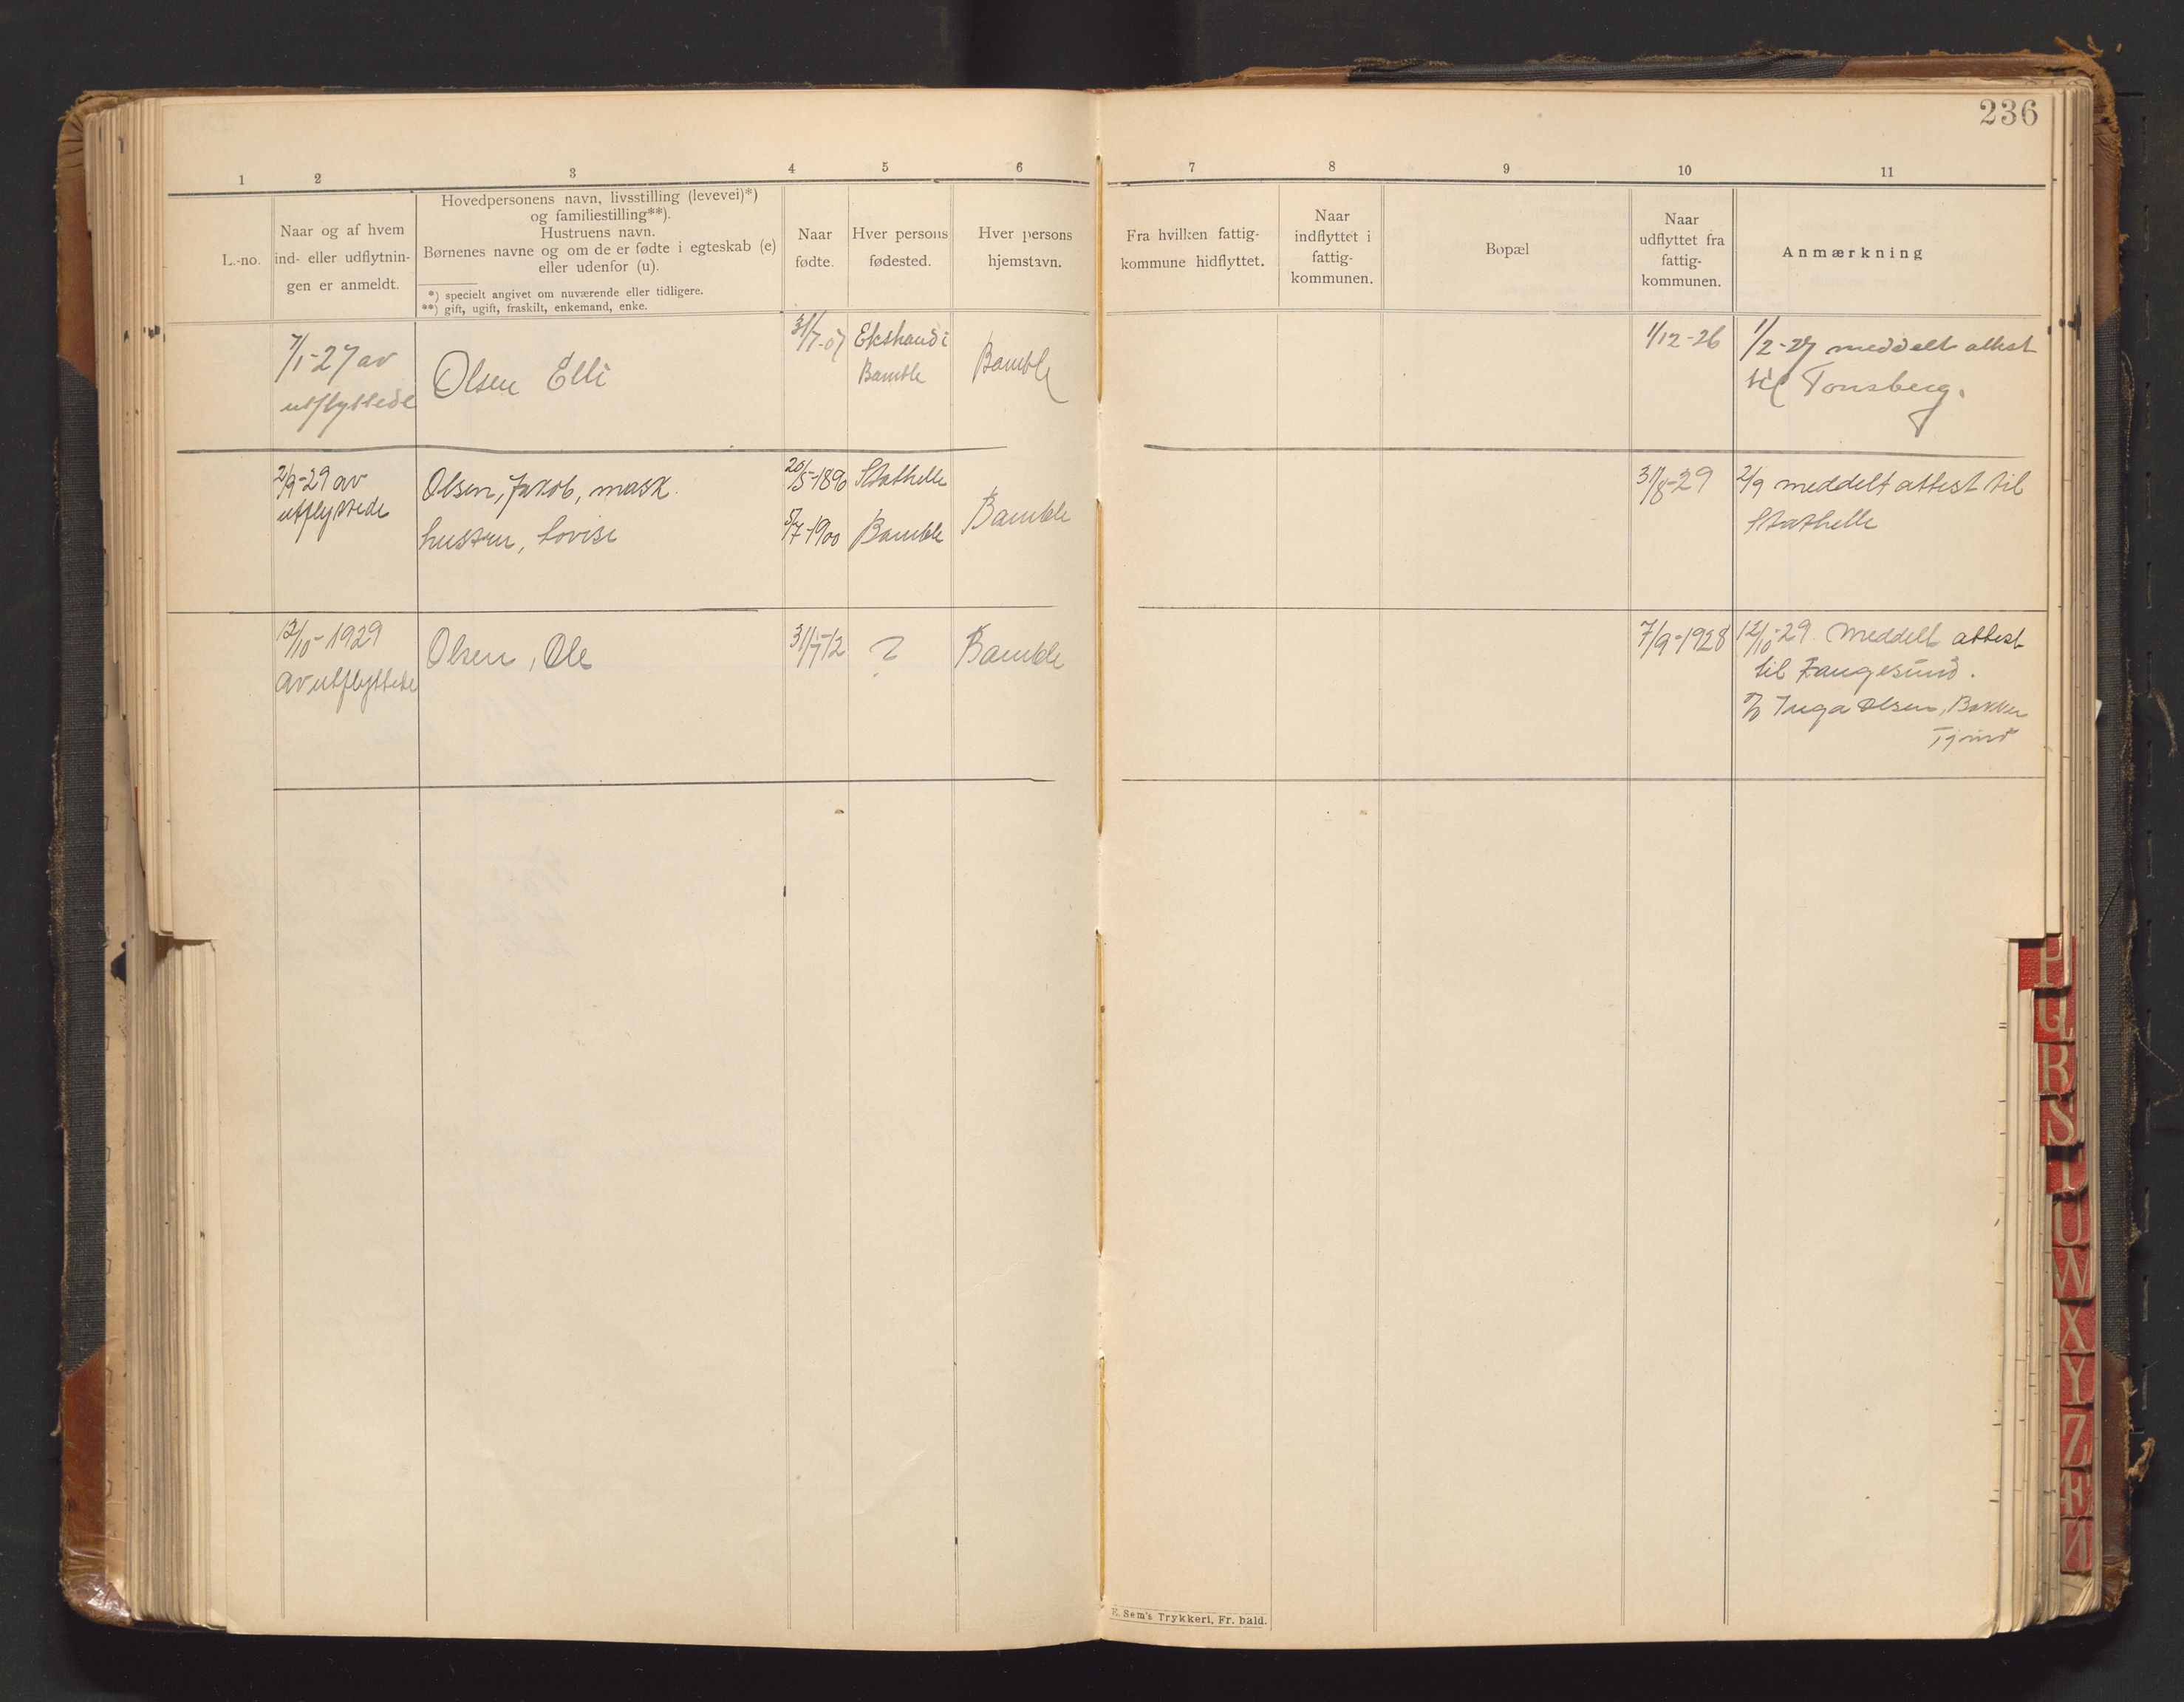 236
1 2 3 4 5 6 7 8 9 10 11
L.-no.
Naar og af hvem
ind- eller udflytnin-
gen er anmeldt.
Hovedpersonens navn, livsstilling (levevei)*)
og familiestilling**).
Hustruens navn.
Børnenes navne og om de er fødte i egteskab (e)
eller udenfor (u).
*) specielt angivet om nuværende eller tidligere.
**) gift, ugift, fraskilt, enkemand, enke.
Naar
fødte.
Hver persons
fødested.
Hver persons
hjemstavn.
Fra hvilken fattig-
kommune hidflyttet.
Naar
indflyttet i
fattig-
kommunen.
Bopæl
Naar
udflyttet fra
fattig-
kommunen.
Anmærkning
7/1-27 av
utflyttede
Olsen Elli
31/7-07
Ekstrand i
Bamble
Bamble
1/12-26
1/2-27 meddelt attest
til Tønsberg.
2/9-29 av
utflyttede
Olsen, Jakob, mask.
hustru, Lovise
20/5-1890
5/7-1900
Stathelle
Bamble
Bamble
31/8-29
2/9 meddelt attest til
Stathelle
12/10-1929
av utflyttede
Olsen, Ole
31/7-12
?
Bamble
7/9-1928
12/10-29. Meddelt attest
til Langesund.
Inga Olsen, Bakken
E. Sem's Trykkeri, Fr. hald.
P
Q
R
S
T
U
W
X
Y
Z
Æ